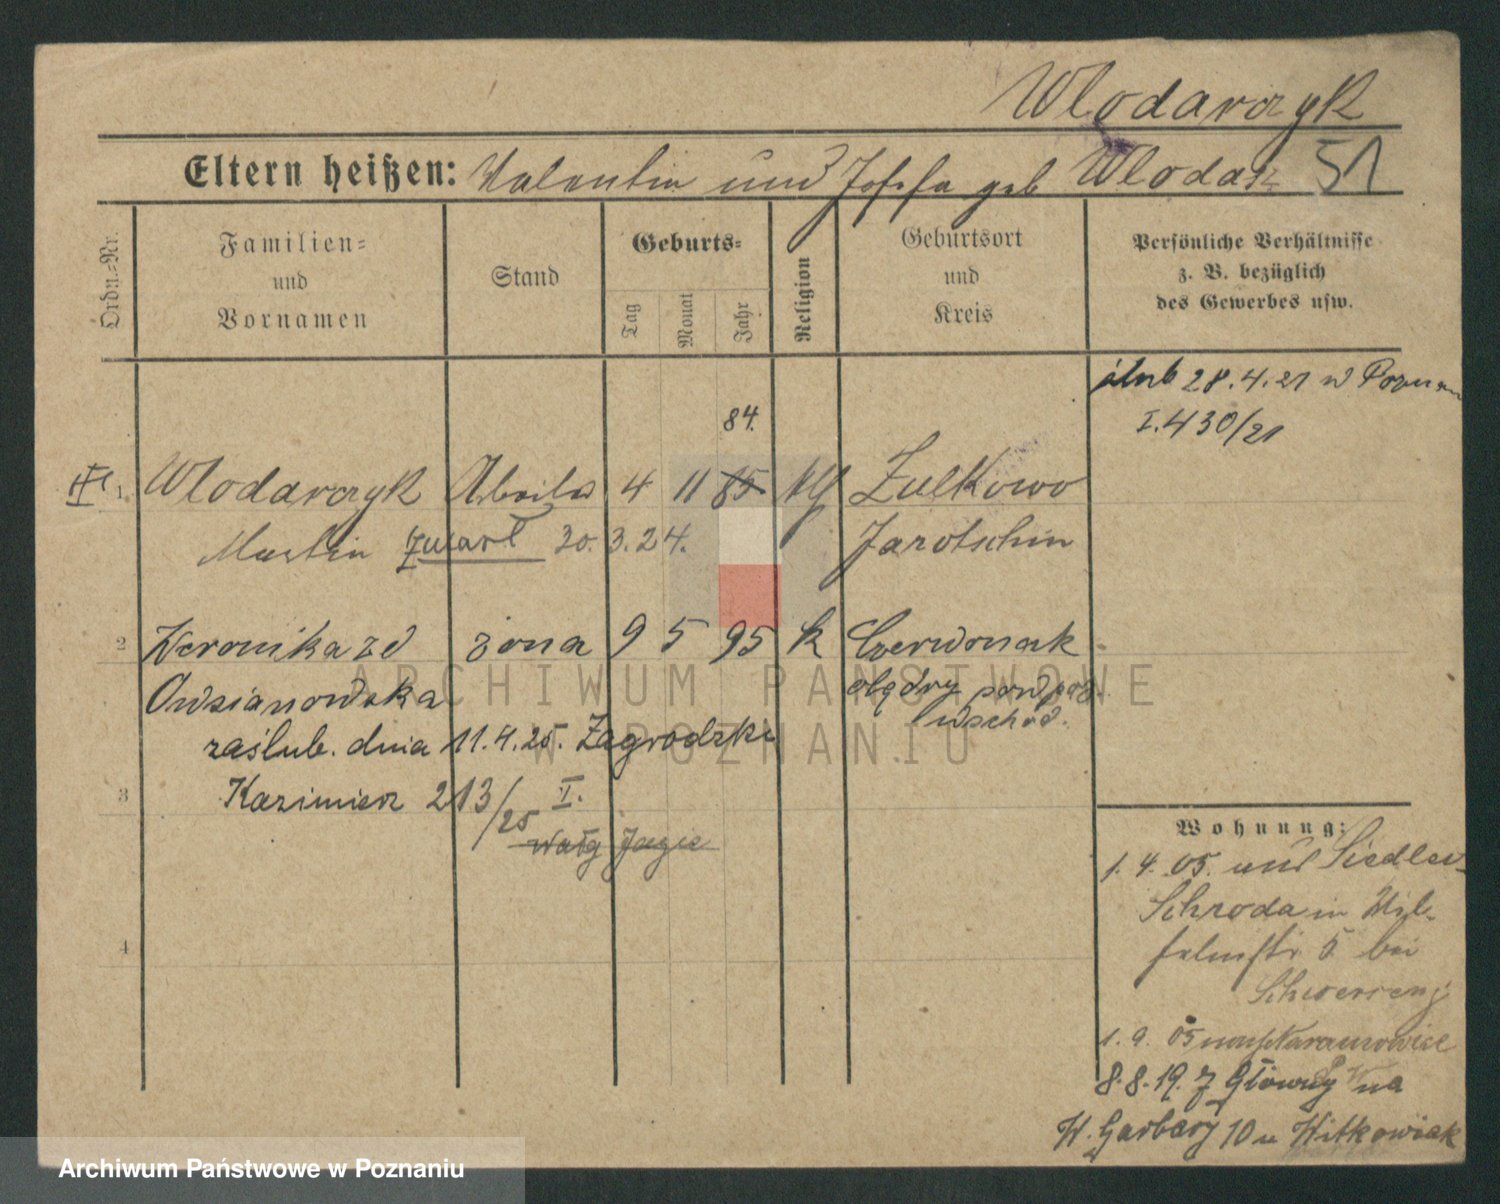 Wlodarczyk
Eltern heißen: Valentin und Josefa geb Wlodarz 51
Ordn.-Nr.
Familien- und Vornamen
Stand
Geburts-
Tag
Monat
Jahr
Religion
Geburtsort und Kreis
Persönliche Verhältnisse z. B. bezüglich des Gewerbes usw.
ślub 28.4.21 w Poznan
I.430/21
84.
1 Wlodarczyk Arbeiter 4 11 85 Zulkowo
Martin zmarł 30.3.24. Jarotschin
2 Weronika zd żona 9 5 95 k Czerwonak
Owsianowska olędry pow poz
wschód.
zaślub. dnia 11.4.25. Zagrodzki
3 Kazimierz 213/25 I.
Jagie
4
Wohnung:
1. 4. 05. aus Siedlec
Schroda in Wil-
helmstr 5 bei
Schwersenz
1. 9. 05 nach Karamowice
8.8.19. z Główny na
W. Garbary 10 u Witkowiak
ARCHIWUM PAŃSTWOWE
W POZNANIU
Archiwum Państwowe w Poznaniu